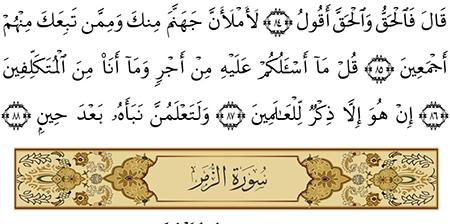 قَالَ فَٱلْحَقُّ وَٱلْحَقَّ أَقُولُ ﴿٨٤﴾ لَأَمْلَأَنَّ جَهَنَّمَ مِنكَ وَمِمَّن تَبِعَكَ مِنْهُمْ
أَجْمَعِينَ ﴿٨٥﴾ قُلْ مَآ أَسْـَٔلُكُمْ عَلَيْهِ مِنْ أَجْرٍ وَمَآ أَنَا۠ مِنَ ٱلْمُتَكَلِّفِينَ
﴿٨٦﴾ إِنْ هُوَ إِلَّا ذِكْرٌ لِّلْعَٰلَمِينَ ﴿٨٧﴾ وَلَتَعْلَمُنَّ نَبَأَهُۥ بَعْدَ حِينٍۭ ﴿٨٨﴾
سُورَةُ الزُّمَرِ